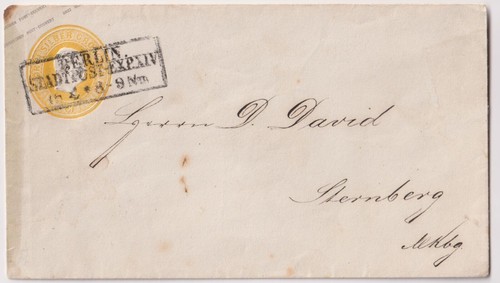 BERLIN
STADTPOST-EXP.XIV
8-9 Nm
Herrn D. David
Sternberg
Mklbg